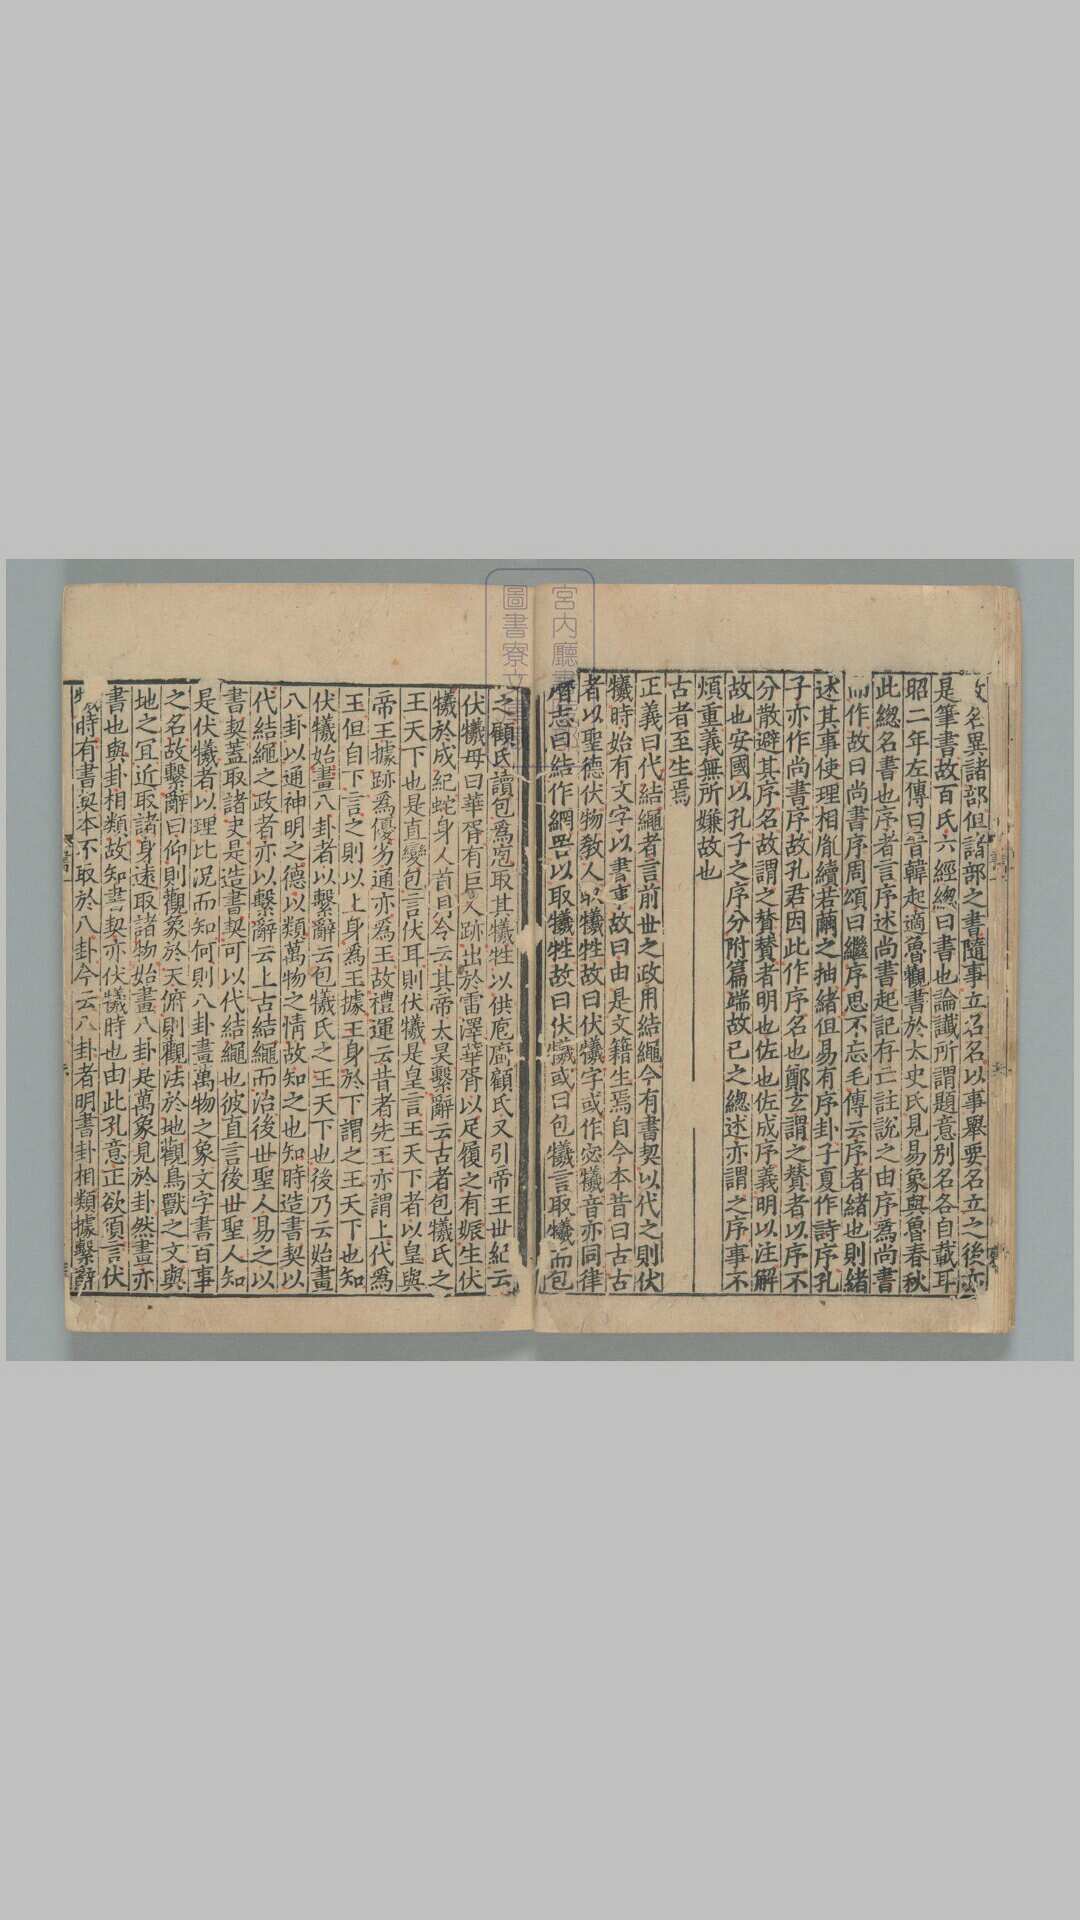 故名異諸部但諸部之書隨事立名名以事舉要名立之後亦
是筆書故百氏六經總曰書也論讖所謂題意別名各自載耳
昭二年左傳曰晉韓起適魯觀書於太史氏見易象與魯春秋
此總名書也序者言序述尚書起記存亡註說之由序爲尚書
而作故曰尚書序周頌曰繼序思不忘毛傳云序者緒也則緒
述其事使理相胤續若繭之抽緒但易有序卦子夏作詩序孔
子亦作尚書序故孔君因此作序名也鄭玄謂之贊者以序不
分散避其序名故謂之贊贊者明也佐也佐成序義明以注解
故也安國以孔子之序分附篇端故已之總述亦謂之序事不
煩重義無所嫌故也
古者至生焉
正義曰代結繩者言前世之政用結繩今有書契以代之則伏
犧時始有文字以書事故曰由是文籍生焉自今本昔曰古古
者以聖德伏物教人取犧牲故曰伏犧字或作宓犧音亦同律
曆志曰結作網罟以取犧牲故曰伏犧或曰包犧言取犧而包
之顧氏讀包爲庖取其犧牲以供庖廚顧氏又引帝王世紀云
伏犧母曰華胥有巨人跡出於雷澤華胥以足履之有娠生伏
犧於成紀蛇身人首月令云其帝太昊繫辭云古者包犧氏之
王天下也是直變包言伏耳則伏犧是皇言王天下者以皇與
帝王據跡爲優劣通亦爲王故禮運云昔者先王亦謂上代爲
王但自下言之則以上身爲王據王身於下謂之王天下也知
伏犧始畫八卦者以繫辭云包犧氏之王天下也後乃云始畫
八卦以通神明之德以類萬物之情故知之也知時造書契以
代結繩之政者亦以繫辭云上古結繩而治後世聖人易之以
書契蓋取諸夬是造書契可以代結繩也彼直言後世聖人知
是伏犧者以理比況而知何則八卦畫萬物之象文字書百事
之名故繫辭曰仰則觀象於天俯則觀法於地觀鳥獸之文與
地之宜近取諸身遠取諸物始畫八卦是萬象見於卦然畫亦
書也與卦相類故知書契亦伏犧時也由此孔意正欲須言伏
犧時有書契本不取於八卦今云八卦者明書卦相類據繫辭
宮內廳書
圖書寮文